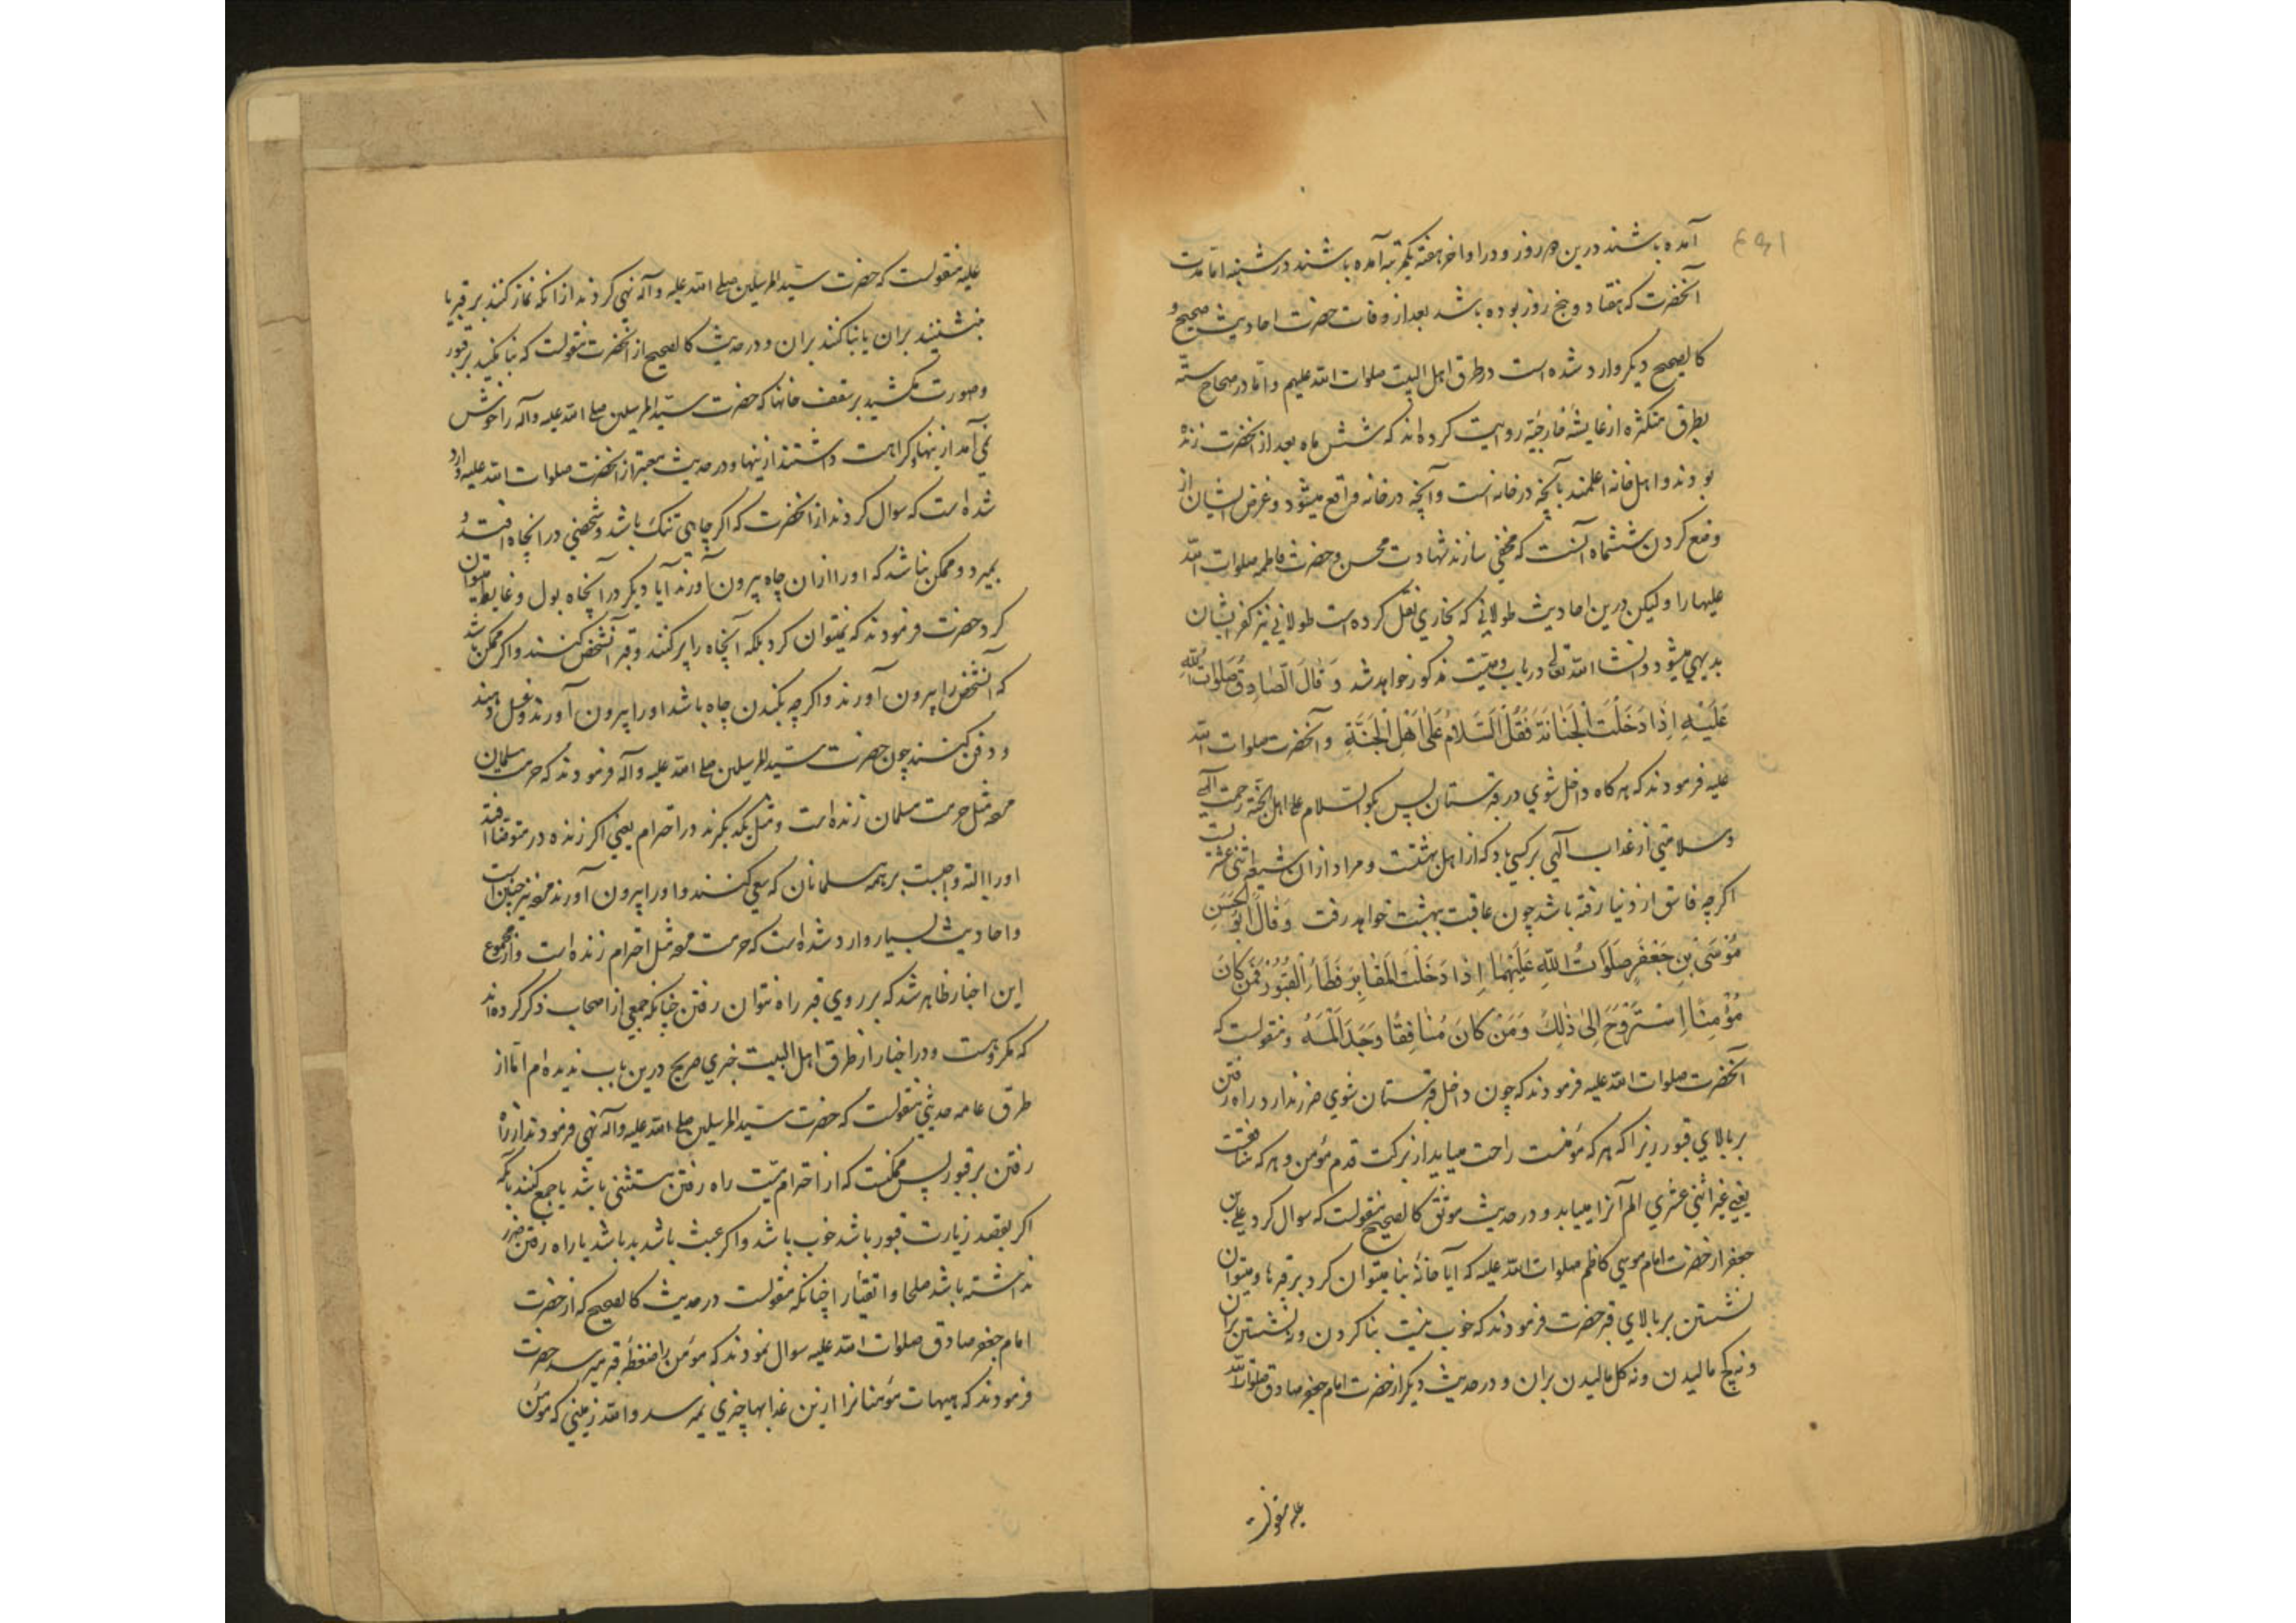 آمده باشند درین هر روز و در اواخر هفته یکمرتبه آمده باشند در شنبه اما مدت
آنحضرت که هفتاد و پنج روز بوده باشد بعد از وفات حضرت احادیث صحیح و
کالصحیح دیگر وارد شده است در طرق اهل البیت صلوات الله علیهم و اما در صحاح سته
بطرق متکثره از عایشهٔ خارجیّه روایت کرده‌اند که شش ماه بعد از آنحضرت زنده
بودند و اهل خانه اعلمند بآنچه در خانه است و آنچه در خانه واقع میشود و غرض ایشان از
وضع کردن ششماه آنست که مخفی سازند شهادت محسن و حضرت فاطمه صلوات الله
علیها را ولیکن درین احادیث طولانی که بخاری نقل کرده است طولانی نیز کفر ایشان
بدیهی میشود و انشاء الله تعالی در باب وصیّت مذکور خواهد شد وَ قَالَ الصَّادِقُ صَلَوَاتُ اللّٰهِ
عَلَیْهِ اِذَا دَخَلْتَ الْجَبَّانَةَ فَقُلْ السَّلَامُ عَلَی اَهْلِ الْجَنَّةِ و آنحضرت صلوات الله
علیه فرمودند که هرگاه داخل شوی در قبرستان پس بگو السلام علی اهل الجنّة رحمت الهی
و سلامتی از عذاب آلهی بر کسی باد که از اهل بهشتست و مراد از آن شیعه اثنی عشریست
اگرچه فاسق از دنیا رفته باشد چون عاقبت ببهشت خواهد رفت وَ قَالَ اَبُو الْحَسَنِ
مُوْسَی بْنِ جَعْفَرٍ صَلَوَاتُ اللّٰهِ عَلَیْهِمَا اِذَا دَخَلْتَ الْمَقَابِرَ فَطَاءِ الْقُبُوْرَ فَمَنْ کَانَ
مُؤْمِنًا اِسْتَرْوَحَ اِلٰی ذٰلِکَ وَ مَنْ کَانَ مُنَافِقًا وَجَدَ اَلَمَهُ و منقولست که
آنحضرت صلوات الله علیه فرمودند که چون داخل قبرستان شوی ضرر ندارد راه رفتن
بر بالای قبور زیرا که هر که مؤمنست راحت مییابد از برکت قدم مؤمن و هر که منافقست
یعنی غیر اثنی عشری الم آنرا مییابد و در حدیث موثق کالصحیح منقولست که سوال کرد علی بن
جعفر از حضرت امام موسی کاظم صلوات الله علیه که آیا خانهٔ بنا میتوان کرد بر قبرها و میتوان
نشستن بر بالای قبر حضرت فرمودند که خوب نیست بنا کردن و نه نشستن بر آن
و نه گچ مالیدن و نه گل مالیدن بران و در حدیث دیگر از حضرت امام جعفر صادق صلوات الله
علیه منقولست
علیه منقولست که حضرت سیّد المرسلین صلی الله علیه و آله نهی کردند از انکه نماز کنند بر قبر یا
بنشینند بران یا بنا کنند بران و در حدیث کالصحیح از آنحضرت منقولست که بنا مکنید بر قبور
و صورت مکشید بر سقف خانها که حضرت سیّد المرسلین صلی الله علیه و آله را خوش
نمی آمد ازینها و کراهت داشتند ازینها و در حدیث معتبر از آنحضرت صلوات الله علیه وارد
شده است که سوال کردند از آنحضرت که اگر چاهی تنگ باشد و شخصی در آنچاه افتد و
بمیرد و ممکن نباشد که او را از ان چاه بیرون آورند آیا دیگر در آنچاه بول و غایط میتوان
کرد حضرت فرمودند که نمیتوان کرد بلکه آنچاه را پر کنند و قبر آنشخص کنند و اگر ممکن باشد
که آنشخص را بیرون آورند و اگرچه بکندن چاه باشد او را بیرون آورند و غسل دهند
و دفن کنند چون حضرت سیّد المرسلین صلی الله علیه و آله فرمودند که حرمت مسلمان
مرده مثل حرمت مسلمان زنده است و مثل یکدیگرند در احترام یعنی اگر زنده در متوضا افتد
او را البته واجبست بر همه مسلمانان که سعی کنند و او را بیرون آورند مرده نیز چنین است
و احادیث بسیار وارد شده است که حرمت مرده مثل احترام زنده است و از مجموع
این اخبار ظاهر شد که بر روی قبر راه نتوان رفتن چنانکه جمعی از اصحاب ذکر کرده‌اند
که مکروهست و در اخبار از طرق اهل البیت خبری صریح درین باب ندیده‌ام اما از
طرق عامه حدیثی منقولست که حضرت سیّد المرسلین صلی الله علیه و آله نهی فرمودند از راه
رفتن بر قبور پس ممکنست که از احترام میّت راه رفتن مستثنی باشد یا جمع کنند بآنکه
اگر بقصد زیارت قبور باشد خوب باشد و اگر عبث باشد بد باشد یا راه رفتن ضرر
نداشته باشد صلحا و اتقیا را چنانکه منقولست در حدیث کالصحیح که از حضرت
امام جعفر صادق صلوات الله علیه سوال نمودند که مؤمن را ضغطهٔ قبر میرسد حضرت
فرمودند که هیهات مؤمنانرا ازین عذابها چیزی نمیرسد والله زمینی که مؤمن